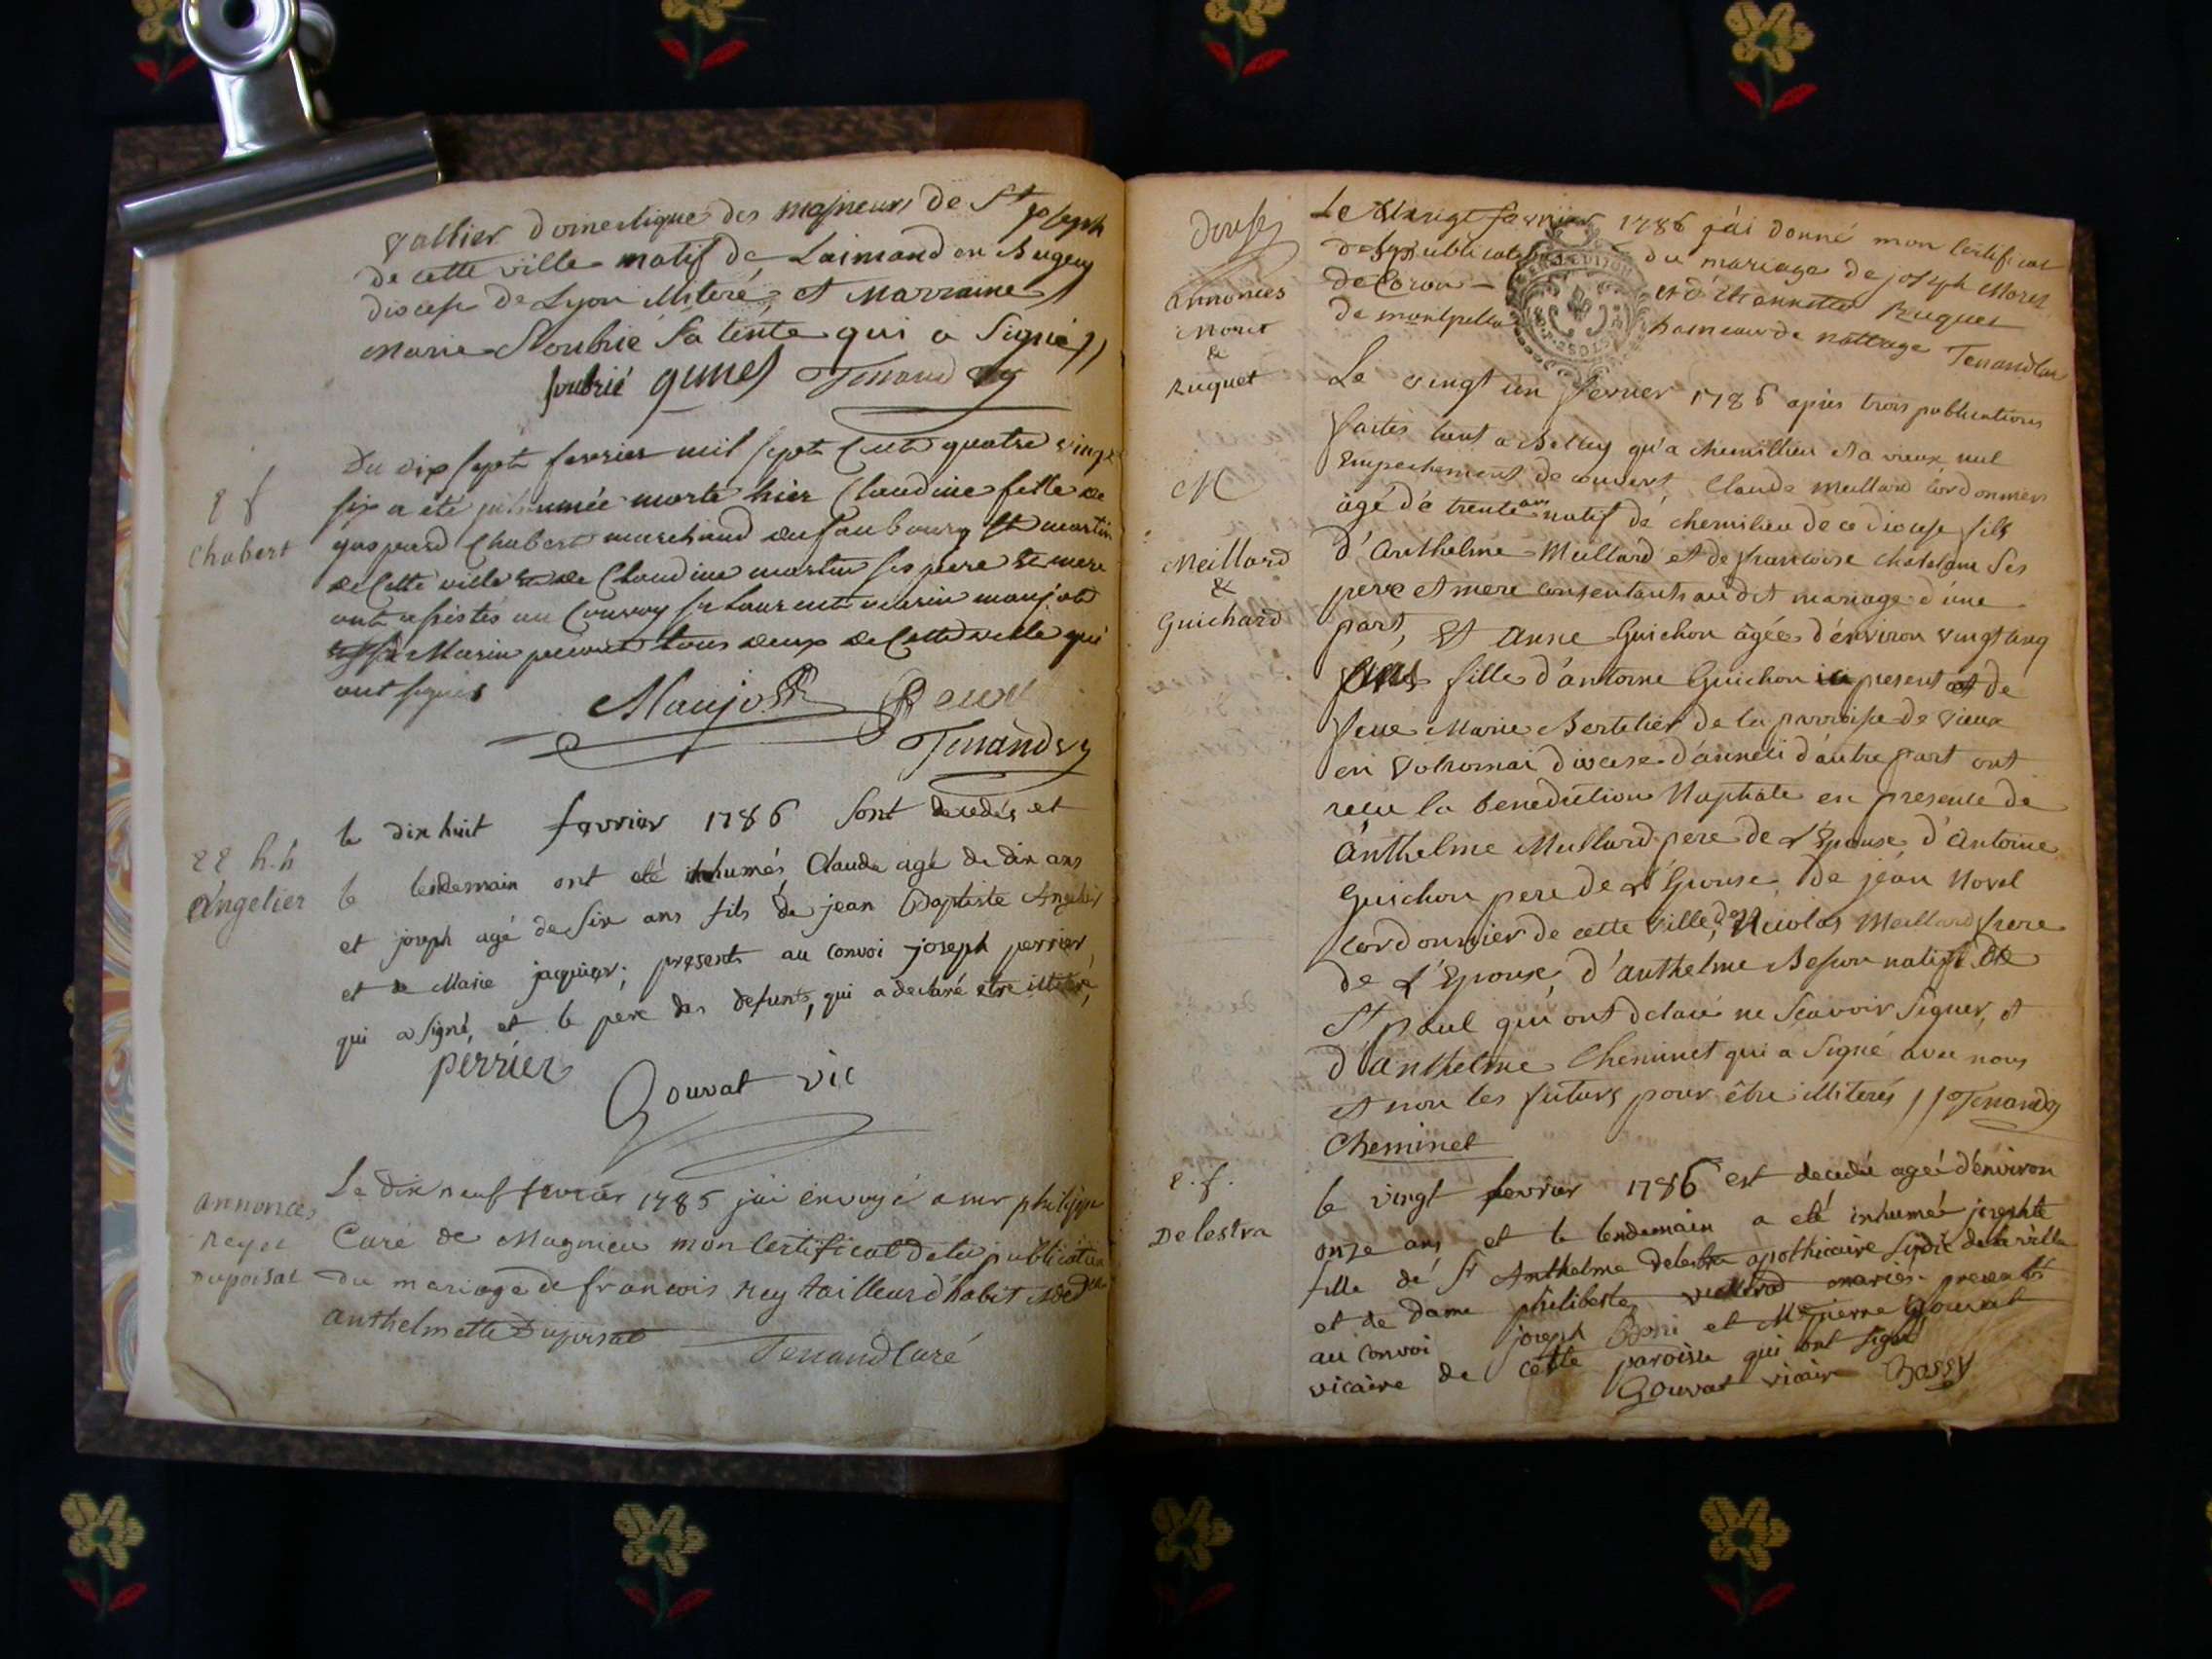 vallier domestique des messieurs de St joseph
de cette ville natif de Laimand en Bugey
diocese de Lyon illiteré, et Marraine
Marie Soubrié sa tente qui a signé //
soubrié gunes Tenand
8 f
Chabert
Du dix sept fevrier mil sept cent quatre vingt
six a été inhumée morte hier Claudine fille de
gaspard Chabert marchand du faubourg St martin
de cette ville et de Claudine martin ses pere et mere
ont assistés au Convoy sr Laurent marin maujot
Marin tous deux de cette ville qui
ont signés
Maujot
Tenand
22 h.h
Angelier
le dix huit fevrier 1786 sont decedés et
le lendemain ont eté inhumés Claude agé de dix ans
et joseph agé de six ans fils de jean Baptiste Angelier
et de Marie jaquier; presents au convoi joseph perrier,
qui a signé, et le pere des defunts, qui a declaré etre illiteré,
perrier
Gouvat vic
annonces
Rey et
Duposat
Le dix neuf fevrier 1786 jai envoyé a mr philippe
Curé de Magnieu mon Certificat de la publication
du mariage de francois Rey tailleur d'habit et de
anthelmette Duposat
Tenand Curé
douse
annonces
Moret
&
Ruguet
Le vingt fevrier 1786 j'ai donné mon Certificat
des publications du mariage de joseph Moret
de Coron et d'Etiennette Ruguet
de hameau de nattage Tenand Cur
M
Meillard
&
Guichard
Le vingt un fevrier 1786 apres trois publications
faites tant a Belley qu'a chemillieu et a vieux nul
Empechement decouvert, Claude Meillard cordonnier
agé de trente ans natif de chemilieu de ce diocese fils
d'Anthelme Meillard et de francoise chatelain ses
pere et mere consentants au dit mariage d'une
part, et Anne Guichon agée d'environ vingt cinq
ans fille d'antoine Guichon ici present et de
feue Marie Bertelier de la parroisse de vieux
en Valromai diocese d'anneci d'autre part ont
recu la benediction Nuptiale en presence de
Anthelme Meillard pere de L'Epouse, d'Antoine
Guichon pere de l'Epouse, de jean Novel
cordonnier de cette ville, de Nicolas Meillard frere
de L'Epoux, d'anthelme Besson natif de
St paul qui ont declaré ne scavoir signer, et
d'anthelme Cheminet qui a signé avec nous
et non les futurs pour être illiterés // Tenand
Cheminet
e.f.
Delestra
le vingt fevrier 1786 est decedée ageé d'environ
onze ans et le lendemain a eté inhumeé josephte
fille de sr Anthelme delestra apothicaire sindic de la ville
et de dame philiberte mariés. presents
au convoi joseph et Me pierre Gouvat
vicaire de cette paroisse qui ont signé
Gouvat vicaire Bossy